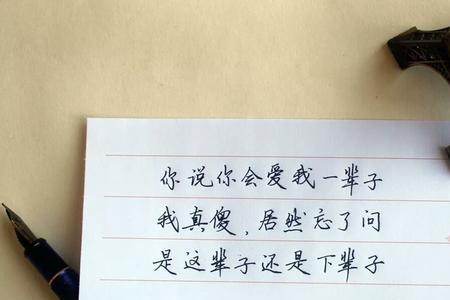 你说你会爱我一辈子
我真傻,居然忘了问
是这辈子还是下辈子